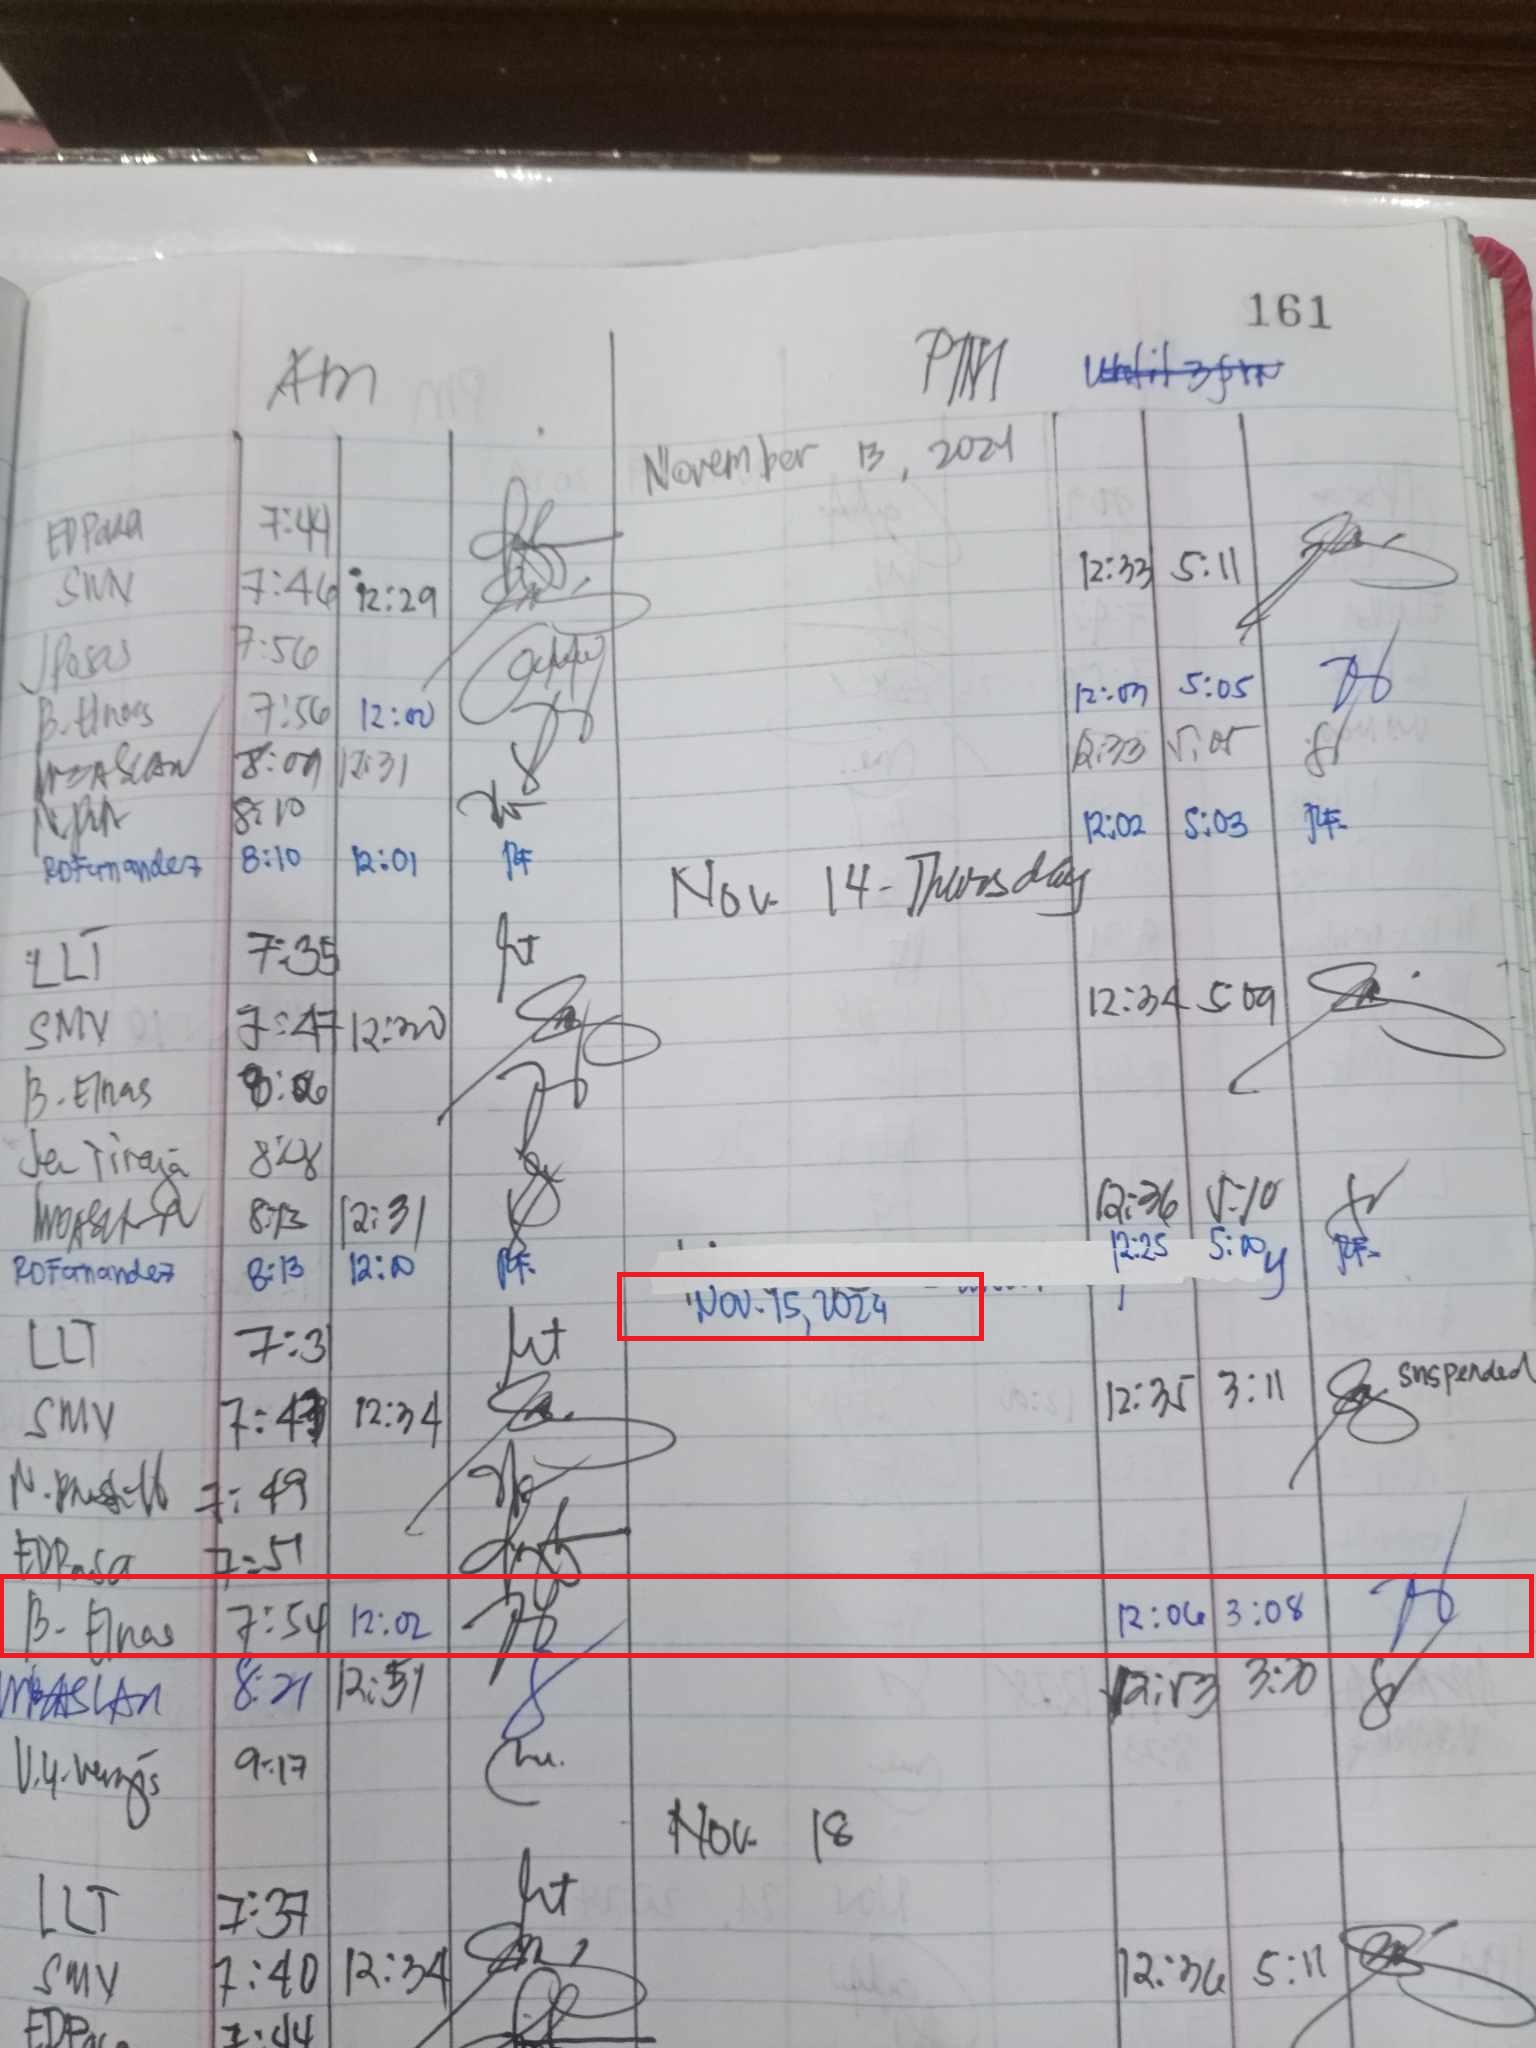 161
Am PM until 3 pm
November 13, 2024
EDPasa 7:44
SMV 7:46 12:29 12:33 5:11
JPosas 7:56
B. Elnas 7:56 12:00 12:01 5:05
8:09 12:31 12:33 5:05
8:10
RDFernandez 8:10 12:01 RF 12:02 5:03 RF-
Nov. 14 - Thursday
LLT 7:35
SMV 7:47 12:30 12:34 5:09
B. Elnas 8:06
8:13 12:31 12:36 5:10
RDFernandez 8:13 12:00 RF- 12:25 5:00 RF-
Nov. 15, 2024
LLT 7:3
SMV 12:34 12:35 3:11 suspended
7:49
EDPasa 7:51
B. Elnas 7:54 12:02 12:06 3:08
8:21 12:51 12:53 3:20
9:17
Nov. 18
LLT 7:37
SMV 7:40 12:34 12:36 5:11
7:44